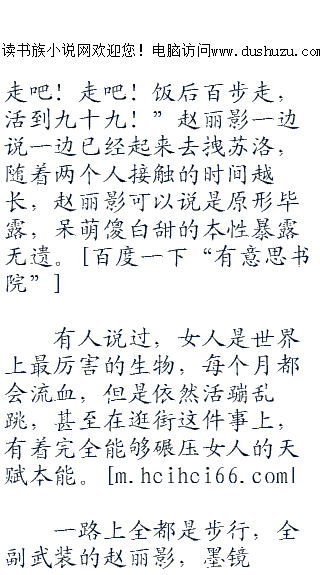 读书族小说网欢迎您！电脑访问www.dushuzu.com
走吧！走吧！饭后百步走，
活到九十九！”赵丽影一边
说一边已经起来去拽苏洛，
随着两个人接触的时间越
长，赵丽影可以说是原形毕
露，呆萌傻白甜的本性暴露
无遗。[百度一下“有意思书
院”]
有人说过，女人是世界
上最厉害的生物，每个月都
会流血，但是依然活蹦乱
跳，甚至在逛街这件事上，
有着完全能够碾压女人的天
赋本能。[m.hcihci66.com|
一路上全都是步行，全
副武装的赵丽影，墨镜